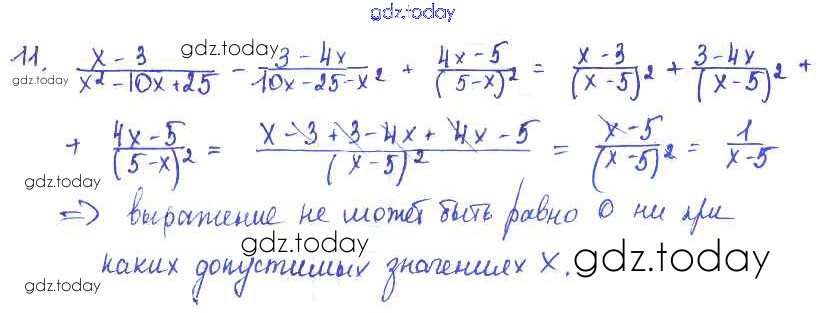 gdz.today
11. (x-3)/(x²-10x+25) - (3-4x)/(10x-25-x²) + (4x-5)/(5-x)² = (x-3)/(x-5)² + (3-4x)/(x-5)² +
gdz.today gdz.today gdz.today gdz.today
+ (4x-5)/(5-x)² = (x-3+3-4x+4x-5)/(x-5)² = (x-5)/(x-5)² = 1/(x-5)
gdz.today
=> выражение не может быть равно 0 ни при
gdz.today gdz.today
каких допустимых значениях x.
gdz.today
gdz.today